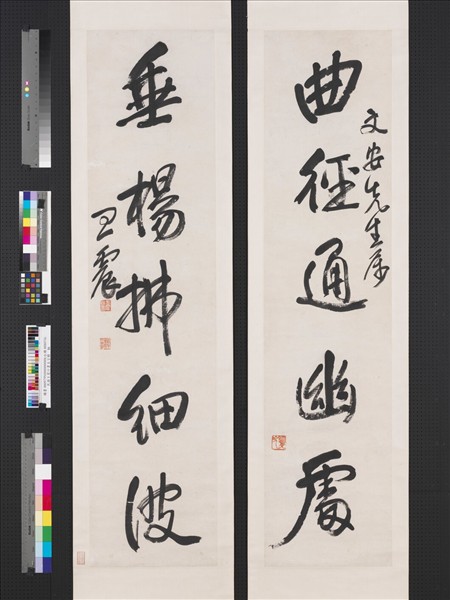 文安先生属
曲徑通幽處
垂楊拂細波
王震